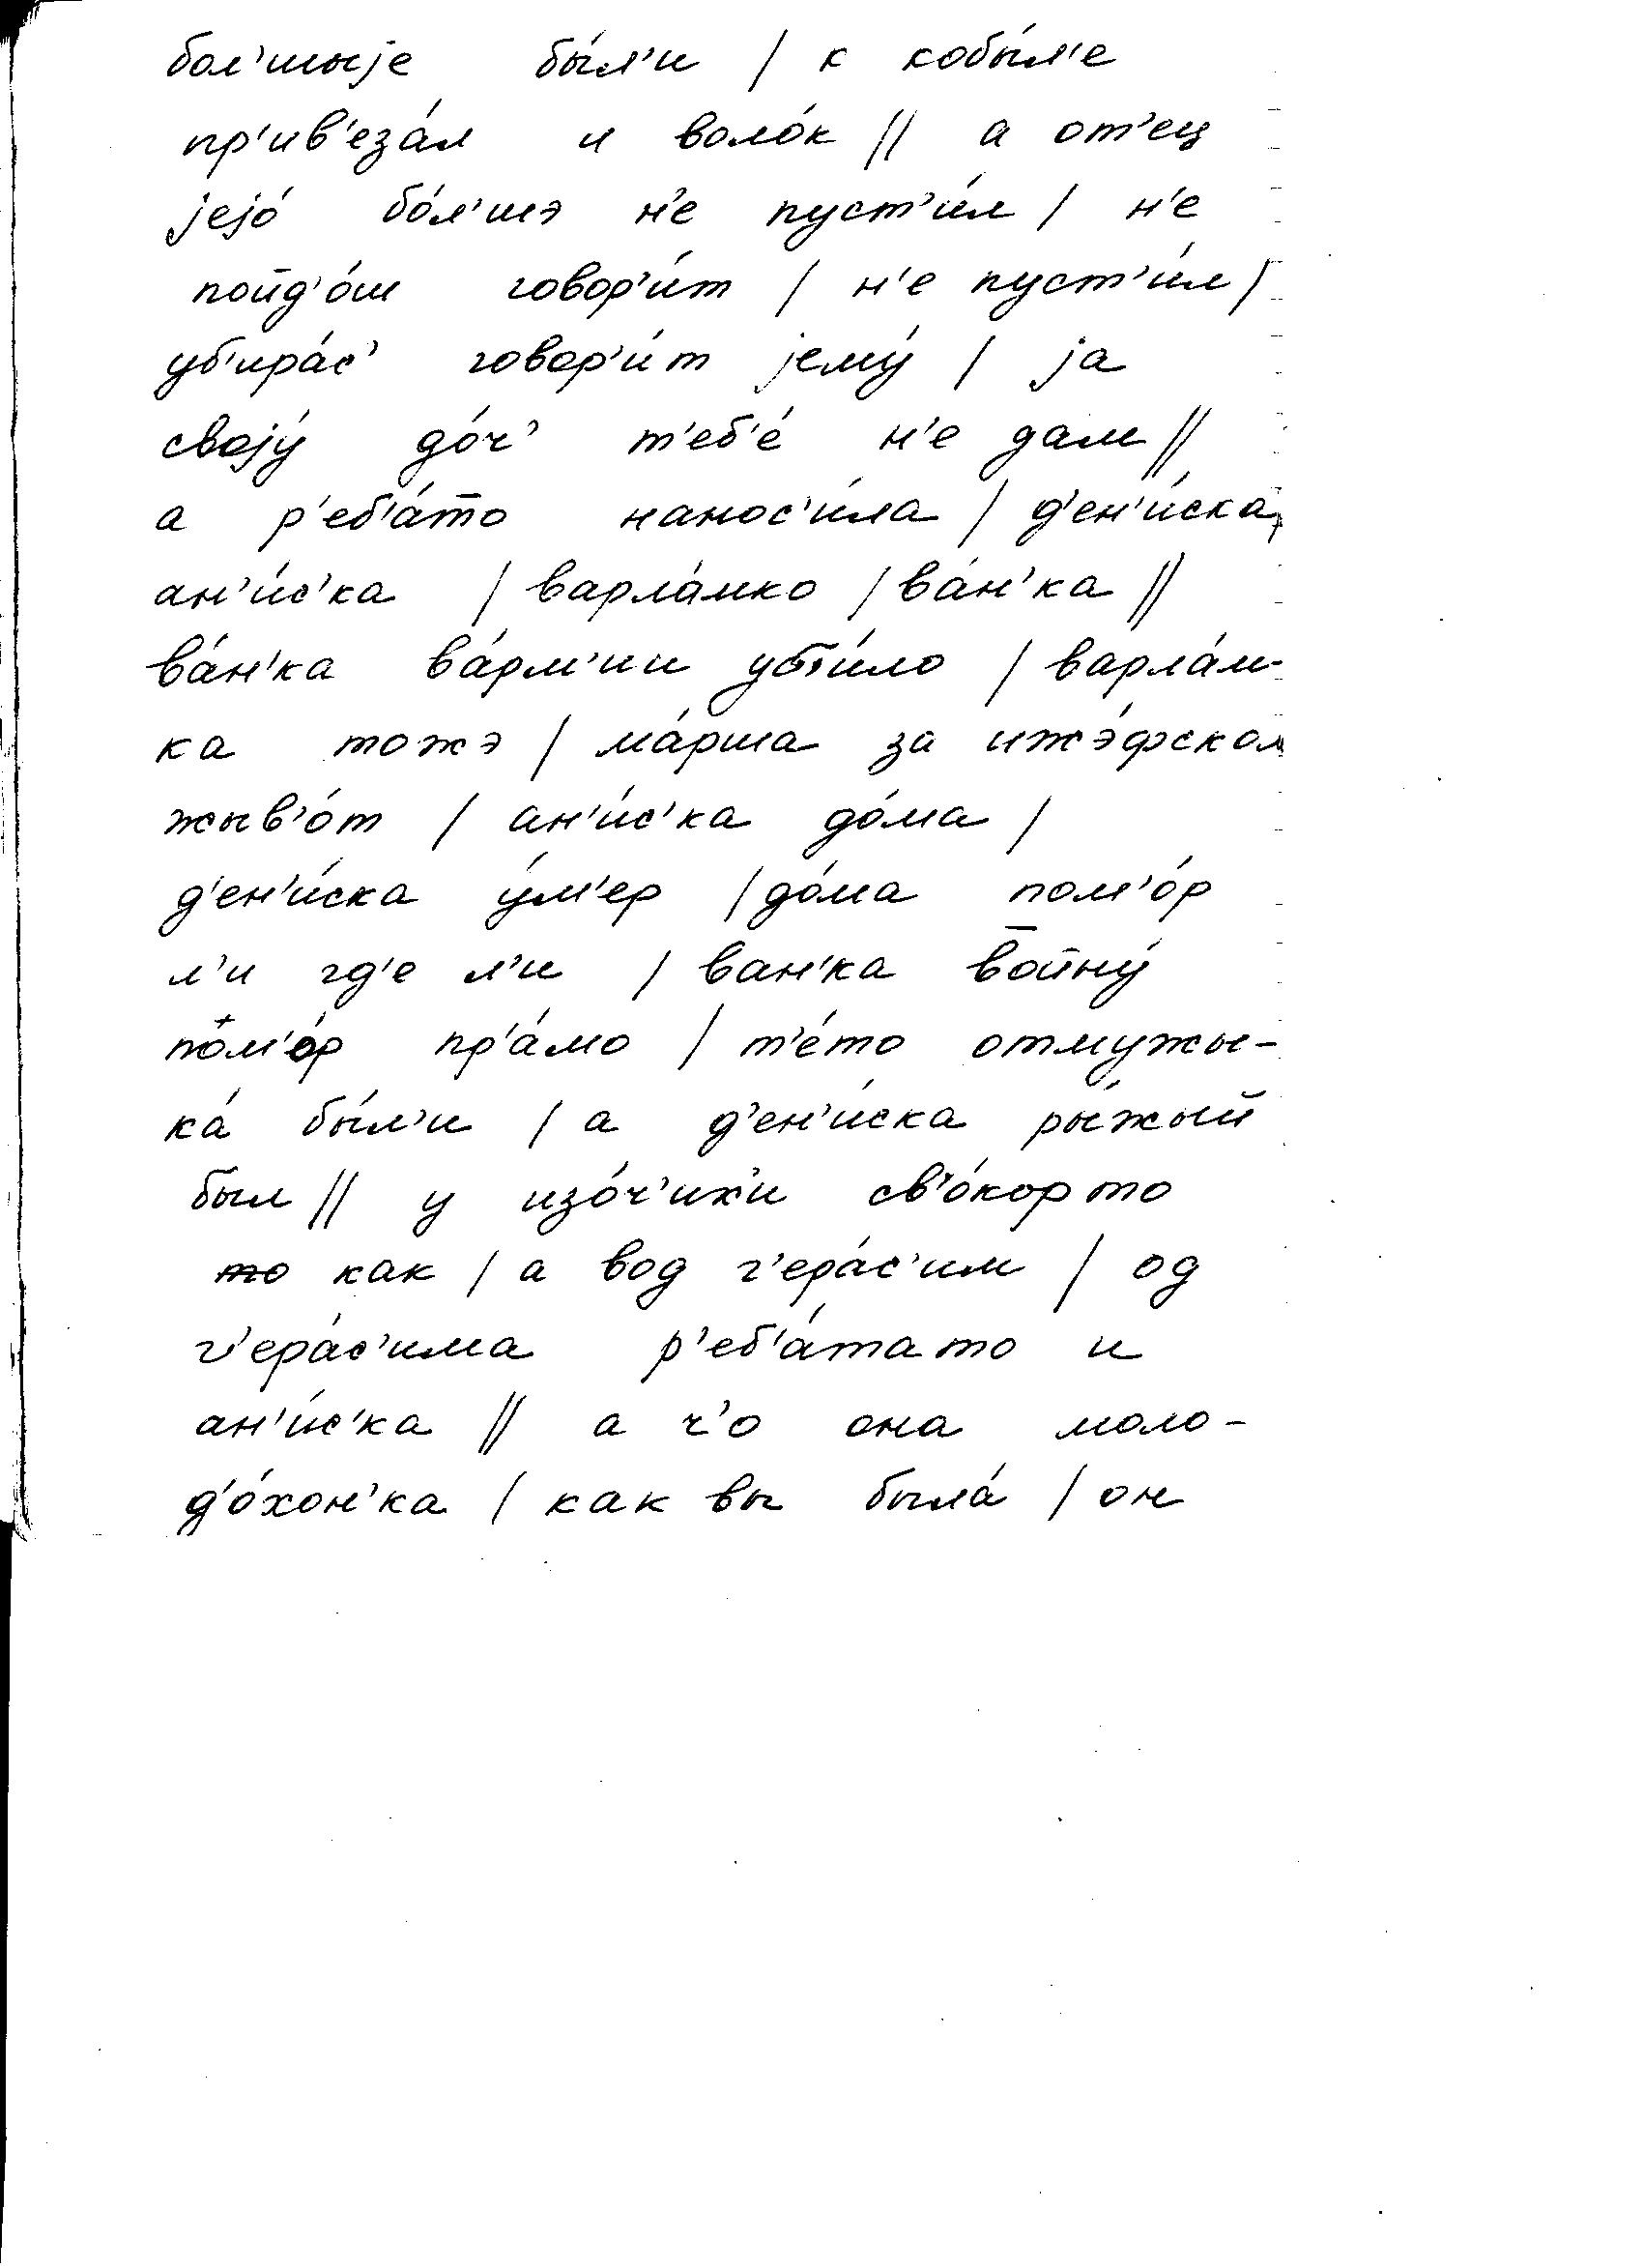 бол'шыjе бы́л'и / к кобы́л'е
пр'ив'еза́л и воло́к // а от'ец
jejó бо́л'шэ н'е пуст'и́л / н'е
пойд'о́ш говор'и́т / н'е пуст'и́л /
уб'ира́с' говор'и́т jему́ / jа
своjу́ до́ч' т'еб'е́ н'е дам //
а р'еб'а́т̄о нанос'и́ла / д'ен'и́ска,
ан'и́с'ка / варла́мко / ва́н'ка //
ва́н'ка ва́рм'ии уб'и́ло / варла́м-
ка тожэ / ма́рша за ижэ́фском
жыв'о́т / ан'и́с'ка до́ма /
д'ен'и́ска у́м'ер / до́ма пом'о́р
л'и гд'е л'и / ван'ка в̄ойну́
пом'о́р пр'а́мо / т'е́то отмужы-
ка́ бы́л'и / а д'ен'и́ска ры́жый
был // у изо́ч'их'и св'о́кор то
то как / а вод г'ера́с'им / од
г'ера́с'има р'еб'а́тато и
ан'и́с'ка // а ч'о она моло-
д'о́хон'ка / как вы была́ / он